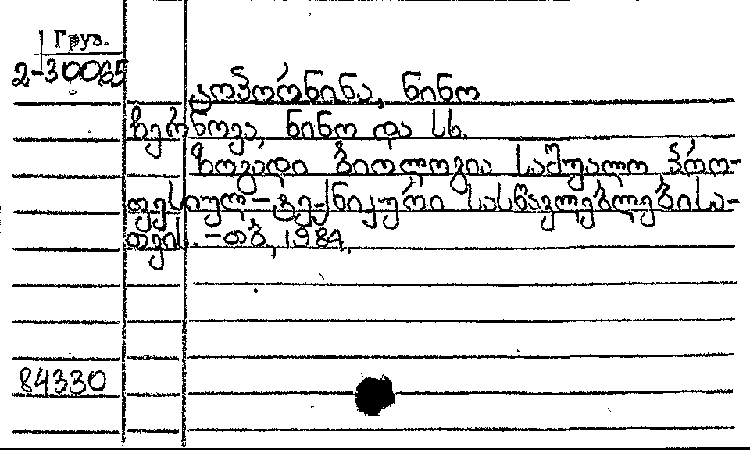 Груз.
2-30065
ნინო
ჩერნოვა, ნინო და სხ.
ზოგადი ბიოლოგია საშუალო პრო-
ფესიულ-ტექნიკური სასწავლებლებისა-
თვის. -თბ, 1984.
84330